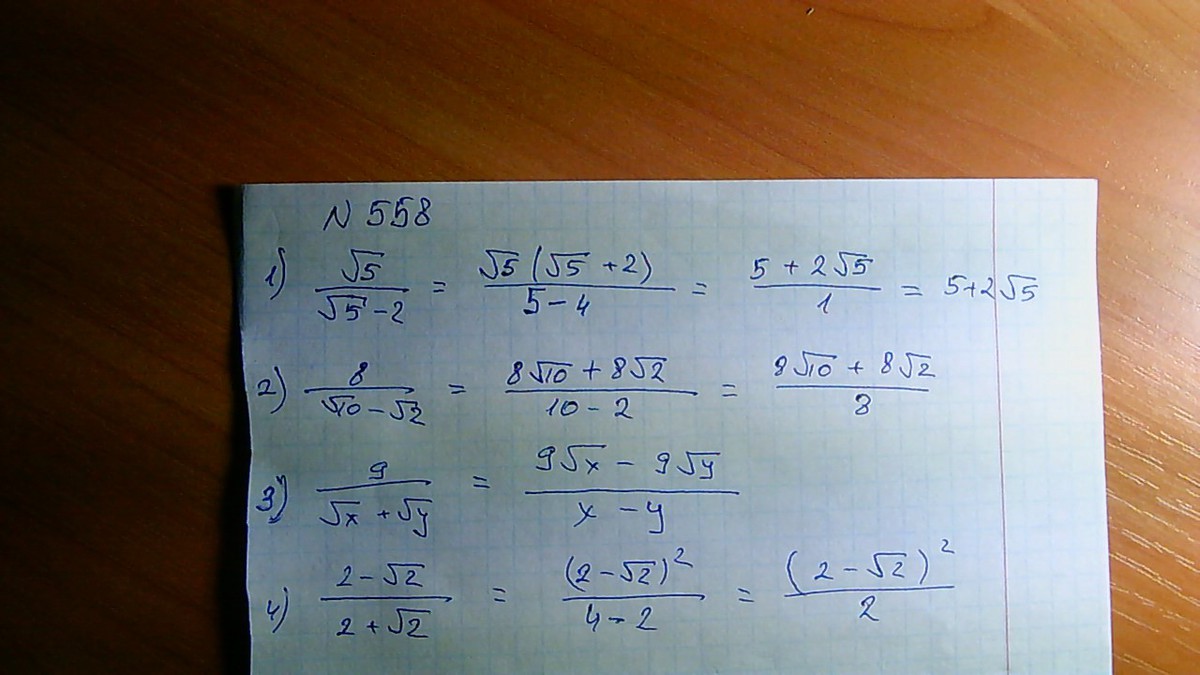 N 558
1) √5 / (√5 - 2) = √5 (√5 + 2) / (5 - 4) = (5 + 2√5) / 1 = 5+2√5
2) 8 / (√10 - √2) = (8√10 + 8√2) / (10 - 2) = (8√10 + 8√2) / 8
3) 9 / (√x + √y) = (9√x - 9√y) / (x - y)
4) (2 - √2) / (2 + √2) = (2 - √2)² / (4 - 2) = (2 - √2)² / 2